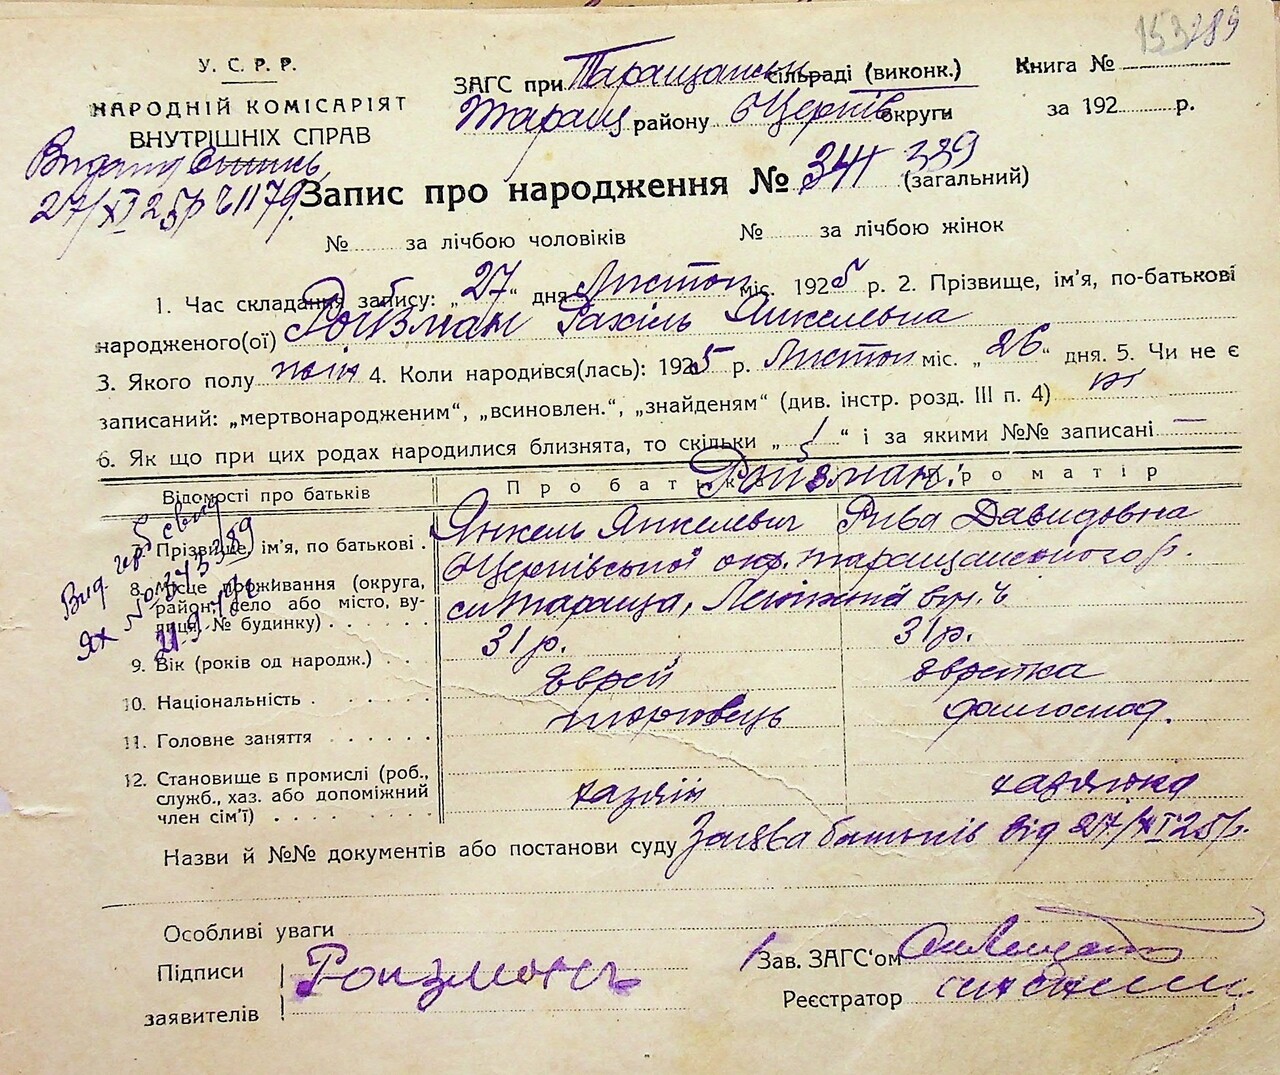 153 289
У. С. Р. Р.
НАРОДНІЙ КОМІСАРІЯТ
ВНУТРІШНІХ СПРАВ
ЗАГС при Таращанськ сільраді (виконк.)
Тиращ району Б Церків округи
Книга №
за 192 р.
27/XI 25р № 1179.
Запис про народження № 341 339 (загальний)
№ за лічбою чоловіків № за лічбою жінок
1. Час складання запису: „27“ дня Листоп міс. 1925 р. 2. Прізвище, ім’я, по-батькові
народженого(ої) Ройзман Рахіль Янкелевна
3. Якого полу жін 4. Коли народився(лась): 1925 р. Листоп міс. „26“ дня. 5. Чи не є
записаний: „мертвонародженим“, „всиновлен.“, „знайденям“ (див. інстр. розд. III п. 4) ні
6. Як що при цих родах народилися близнята, то скільки „1“ і за якими №№ записані —
Відомості про батьків Про батька Про матір
Ройзман:
7. Прізвище, ім’я, по батькові . Янкель Янкелевич Рива Давидовна
8. Місце проживання (округа, район, село або місто, вулиця, № будинку) Б Церківської окр. таращанського р.
м. Тараща, буд. 4
9. Вік (років од народж.) 31 р. 31 р.
10. Національність Єврей Єврейка
11. Головне заняття торговець домгоспод.
12. Становище в промислі (роб.,
служб., хаз. або допоміжний
член сім’ї) хазяїн хазяйка
Назви й №№ документів або постанови суду Заява батьків від 27/XI 25р.
Особливі уваги
Підписи
заявителів Ройзман
Зав. ЗАГС’ом
Реєстратор